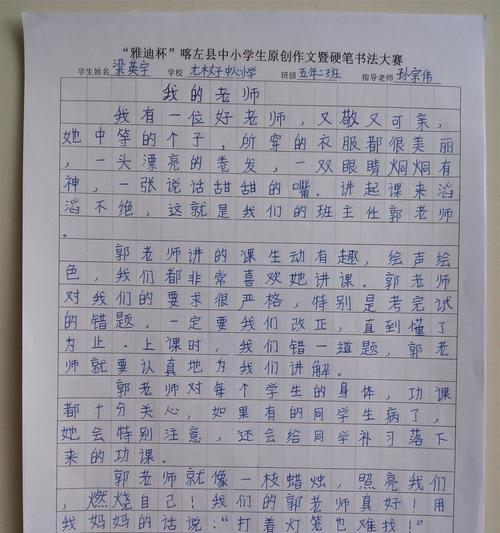 “雅迪杯”喀左县中小学生原创作文暨硬笔书法大赛
学生姓名 梁英宇 学校 尤杖子中心小学 班级 五年二班 指导老师 孙宗伟
我的老师
我有一位好老师，又敬又可亲，
她中等的个子，所穿的衣服都很美丽
，一头漂亮的卷发，一双眼睛炯炯有
神，一张说话甜甜的嘴。讲起课来滔
滔不绝，这就是我们的班主任郭老师
。
郭老师讲的课生动有趣，绘声绘
色，我们都非常喜欢她讲课。郭老师
对我们的要求很严格，特别是考完试
的错题，一定要我们改正，直到懂了
为止．上课时，我们错一道题，郭老
师就要认真地为我们讲解。
郭老师对每个学生的身体，功课
都十分关心，如果有的同学生病了，
她会特别注意，还会给同学补习落下
来的功课。
郭老师就像一枝蜡烛，照亮我们
，燃烧自己！我们的郭老师真好！用
我妈妈的话说：“打着灯笼也难找！”